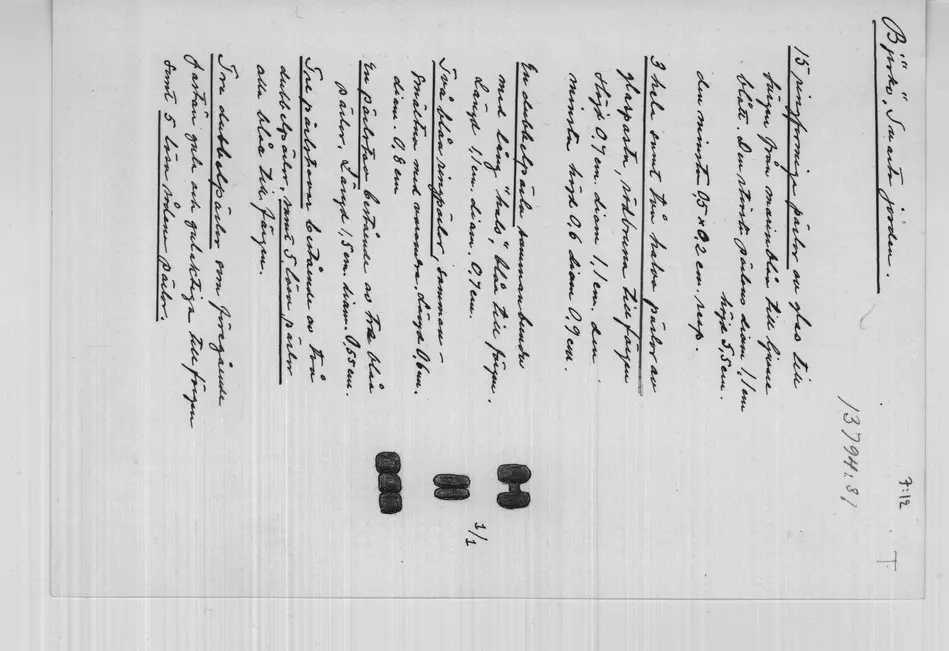 7:12
T
Björkö, Svarta jorden.
13794:81
15 ringformiga pärlor av glas till
färgen från marinblå till ljus
blått. Den största pärlans diam 1,1 cm
höjd 5,5 cm.
den minsta 0,5 x 0,2 cm. resp.
3 hela samt två halva pärlor av
glaspasta, rödbruna till färgen
Höjd 0,7 cm. diam 1,1 cm. den
minsta höjd 0,6 diam 0,9 cm.
En dubbelpärla sammanbunden
med lång "hals", blå till färgen.
Längd 1,1 cm. diam. 0,7 cm.
1/1
Två blåa ringpärlor, samman-
smältna med varandra. Längd 0,6 cm.
diam. 0,8 cm
En pärlstav bestående av tre blåa
pärlor, Längd 1,5 cm. diam. 0,55 cm.
Tre pärlstavar bestående av två
dubbelpärlor, samt 5 lösa pärlor
alla blåa till färgen.
Tre dubbelpärlor som föregående
fastän gula och gulaktiga till färgen
samt 5 lösa sådana pärlor.